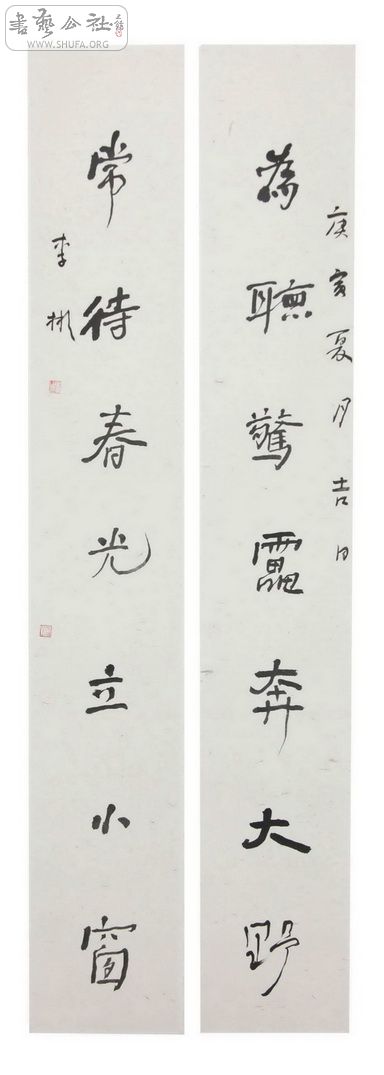 書藝公社
WWW.SHUFA.ORG
庚寅夏月吉日
為聽驚靁奔大野
常待春光立小窗
李彬